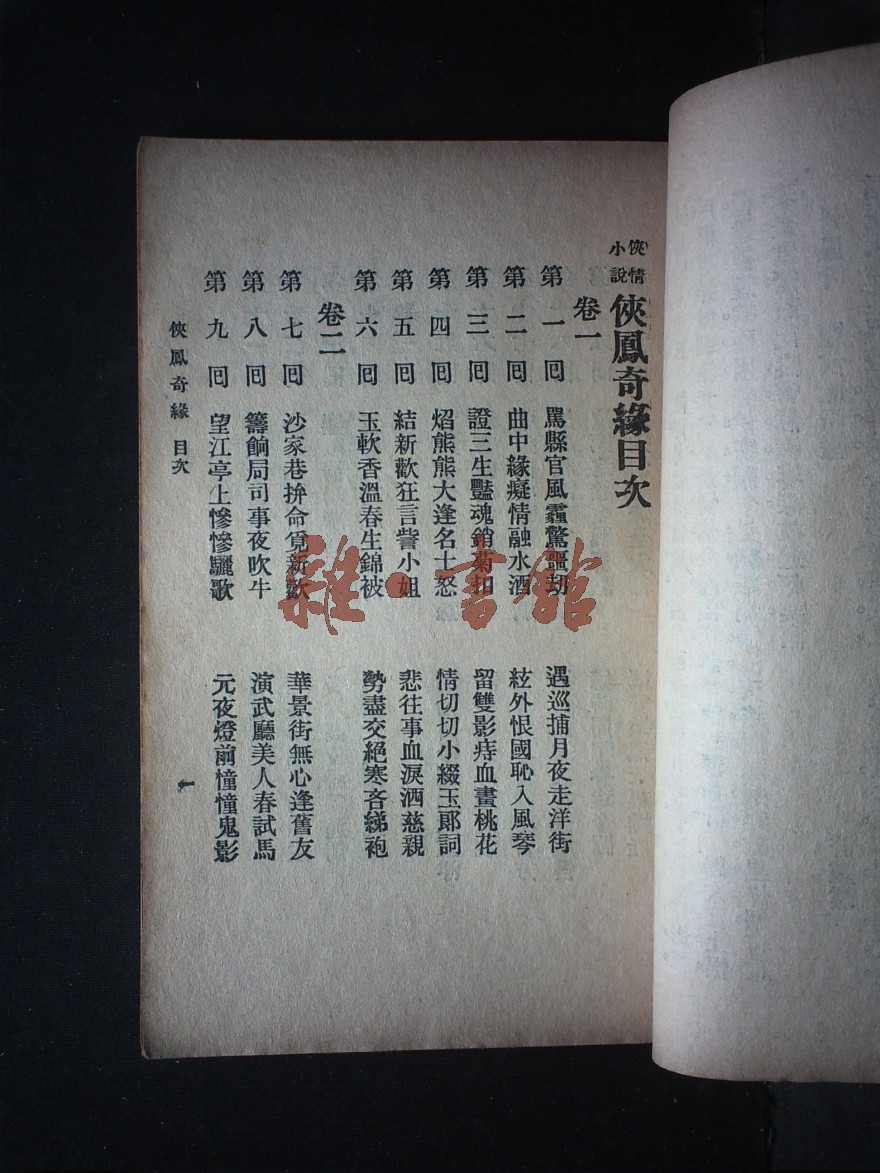 俠情小說
俠鳳奇緣目次
卷一
第一回 罵縣官風霾驚噩劫 遇巡捕月夜走洋街
第二回 曲中緣癡情融水酒 絃外恨國恥入風琴
第三回 證三生豔魂銷菊扣 留雙影痔血畫桃花
第四回 熖熊熊大逢名士怒 情切切小綴玉郞詞
第五回 結新歡狂言訾小姐 悲往事血淚洒慈親
第六回 玉軟香溫春生錦被 勢盡交絕寒吝綈袍
卷二
第七回 沙家巷拚命覓新歡 華景街無心逢舊友
第八回 籌餉局司事夜吹牛 演武廳美人春試馬
第九回 望江亭上慘慘驪歌 元夜燈前憧憧鬼影
俠鳳奇緣 目次
一
雜·書館